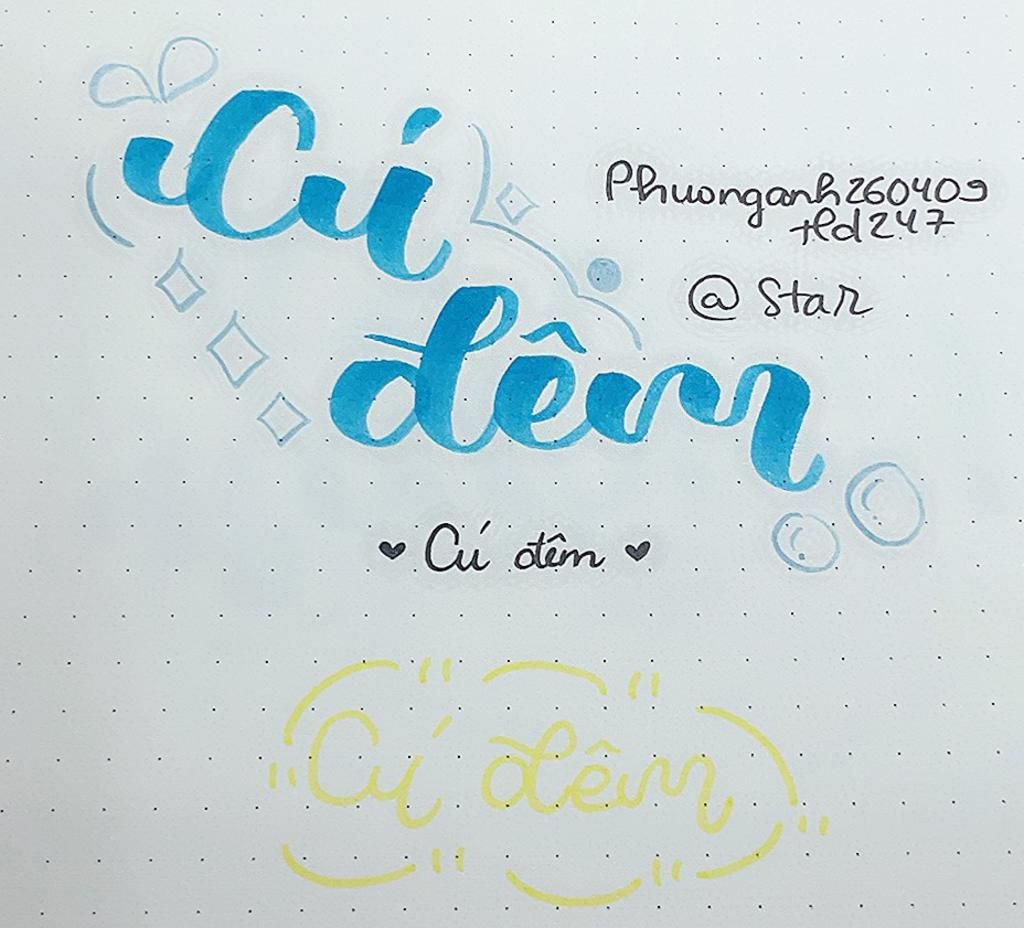 Cú
đêm
Phuonganh260409
tld247
@ Star
Cú đêm
Cú đêm